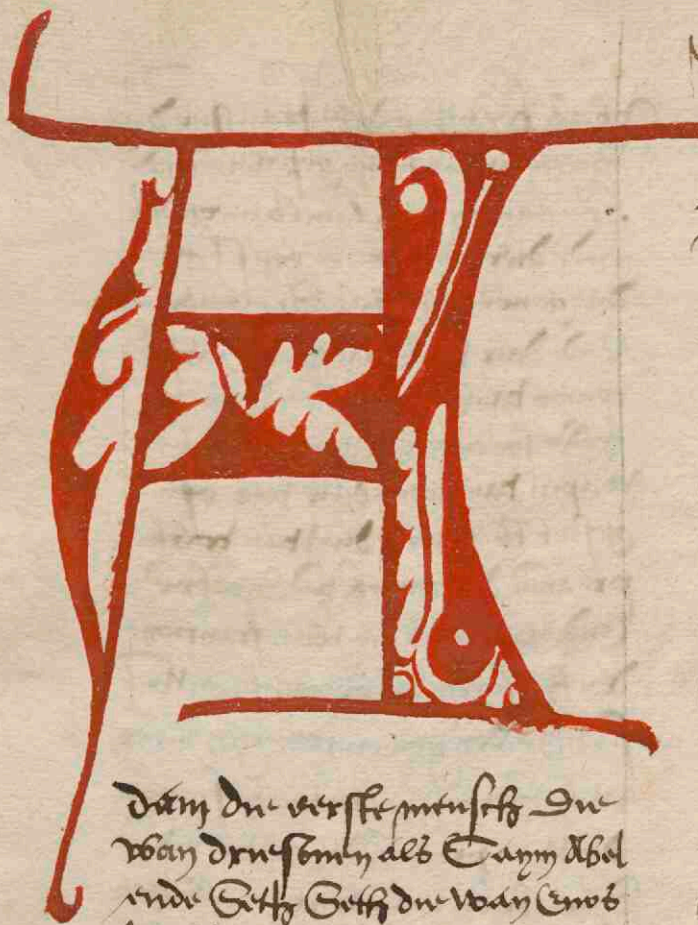 A
dam die eerste mensch Die
wan drie sonen als Caym Abel
ende Seth Seth die wan Enos